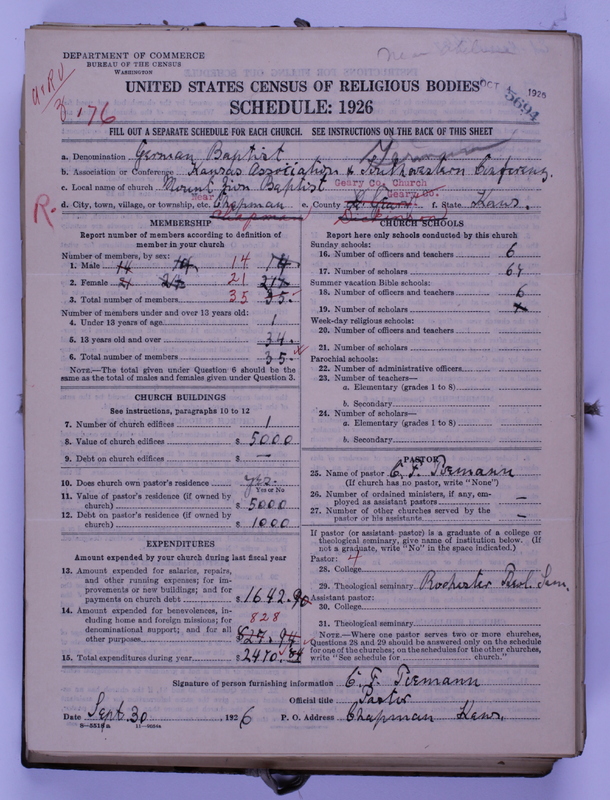 DEPARTMENT OF COMMERCE
BUREAU OF THE CENSUS
WASHINGTON
UNITED STATES CENSUS OF RELIGIOUS BODIES
OCT 1926
5694
SCHEDULE: 1926
176
FILL OUT A SEPARATE SCHEDULE FOR EACH CHURCH. SEE INSTRUCTIONS ON THE BACK OF THIS SHEET
a. Denomination German Baptist German
b. Association or Conference Kansas Association & Southwestern Conference.
c. Local name of church Mount Zion Baptist Geary Co. Church
R.
d. City, town, village, or township, etc. Near Chapman e. County Geary Co. f. State Kans.
Chapman Dickinson
MEMBERSHIP
Report number of members according to definition of
member in your church
Number of members, by sex:
1. Male 14 14 14 14
2. Female 21 21 21
3. Total number of members 35 35.
Number of members under and over 13 years old:
4. Under 13 years of age 1
5. 13 years old and over 34.
6. Total number of members 35.
NOTE.—The total given under Question 6 should be the
same as the total of males and females given under Question 3.
CHURCH BUILDINGS
See instructions, paragraphs 10 to 12
7. Number of church edifices 1
8. Value of church edifices $ 5000
9. Debt on church edifices $ —
10. Does church own pastor's residence yes.
Yes or No
11. Value of pastor's residence (if owned by
church) $ 5000
12. Debt on pastor's residence (if owned by
church) $ 1000
EXPENDITURES
Amount expended by your church during last fiscal year
13. Amount expended for salaries, repairs,
and other running expenses; for im-
provements or new buildings; and for
payments on church debt $ 1642.90
14. Amount expended for benevolences, in-
cluding home and foreign missions; for 828
denominational support; and for all
other purposes $ 827.94
15. Total expenditures during year $ 2470.84
CHURCH SCHOOLS
Report here only schools conducted by this church
Sunday schools:
16. Number of officers and teachers 6
17. Number of scholars
Summer vacation Bible schools:
18. Number of officers and teachers 6
19. Number of scholars
Week-day religious schools:
20. Number of officers and teachers
21. Number of scholars
Parochial schools:
22. Number of administrative officers
23. Number of teachers—
a. Elementary (grades 1 to 8)
b. Secondary
24. Number of scholars—
a. Elementary (grades 1 to 8)
b. Secondary
PASTOR
25. Name of pastor C. F. Tiemann
(If church has no pastor, write "None")
26. Number of ordained ministers, if any, em-
ployed as assistant pastors —
27. Number of other churches served by the
pastor or his assistants —
If pastor (or assistant pastor) is a graduate of a college or
theological seminary, give name of institution below. (If
not a graduate, write "No" in the space indicated.)
Pastor: 4
28. College
29. Theological seminary Rochester Theol. Sem.
Assistant pastor:
30. College
31. Theological seminary
NOTE.—Where one pastor serves two or more churches,
Questions 28 and 29 should be answered only on the schedule
for one of the churches; on the schedules for the other churches,
write "See schedule for church."
Signature of person furnishing information C. F. Tiemann
Official title Pastor
Date Sept. 30, 1926 P. O. Address Chapman Kans.